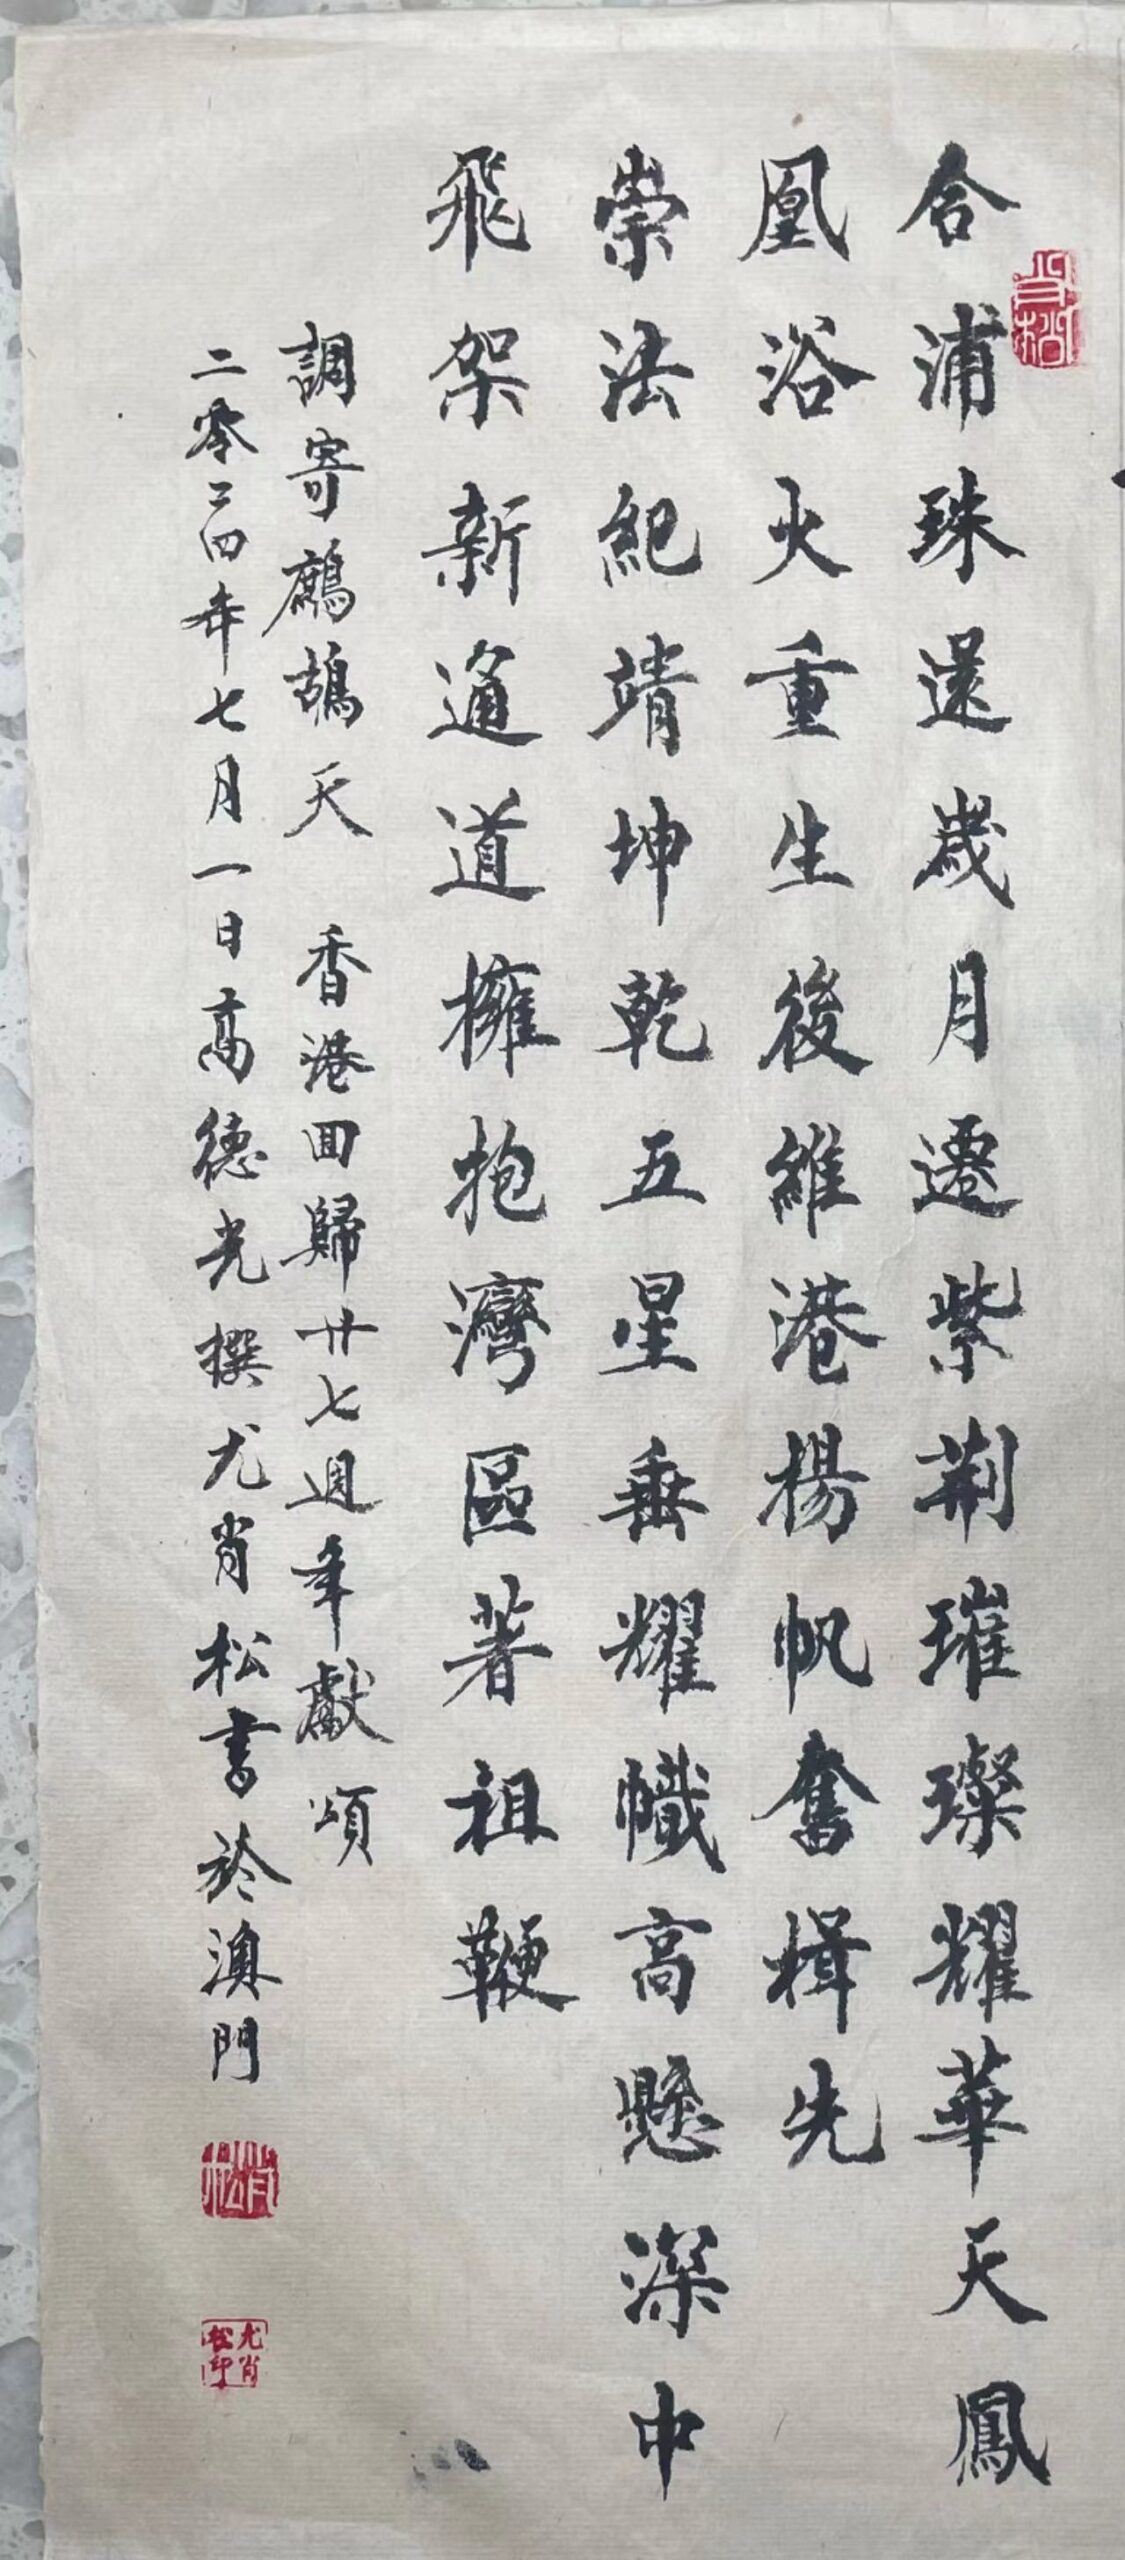 合浦珠還歲月遷紫荊璀璨耀華天鳳
凰浴火重生後維港揚帆奮楫先
崇法紀靖坤乾五星垂耀幟高懸深中
飛架新通道擁抱灣區著祖鞭
調寄鷓鴣天 香港回歸廿七週年獻頌
二零二四年七月一日高德光撰尤肖松書於澳門
肖松
肖松
尤肖松印